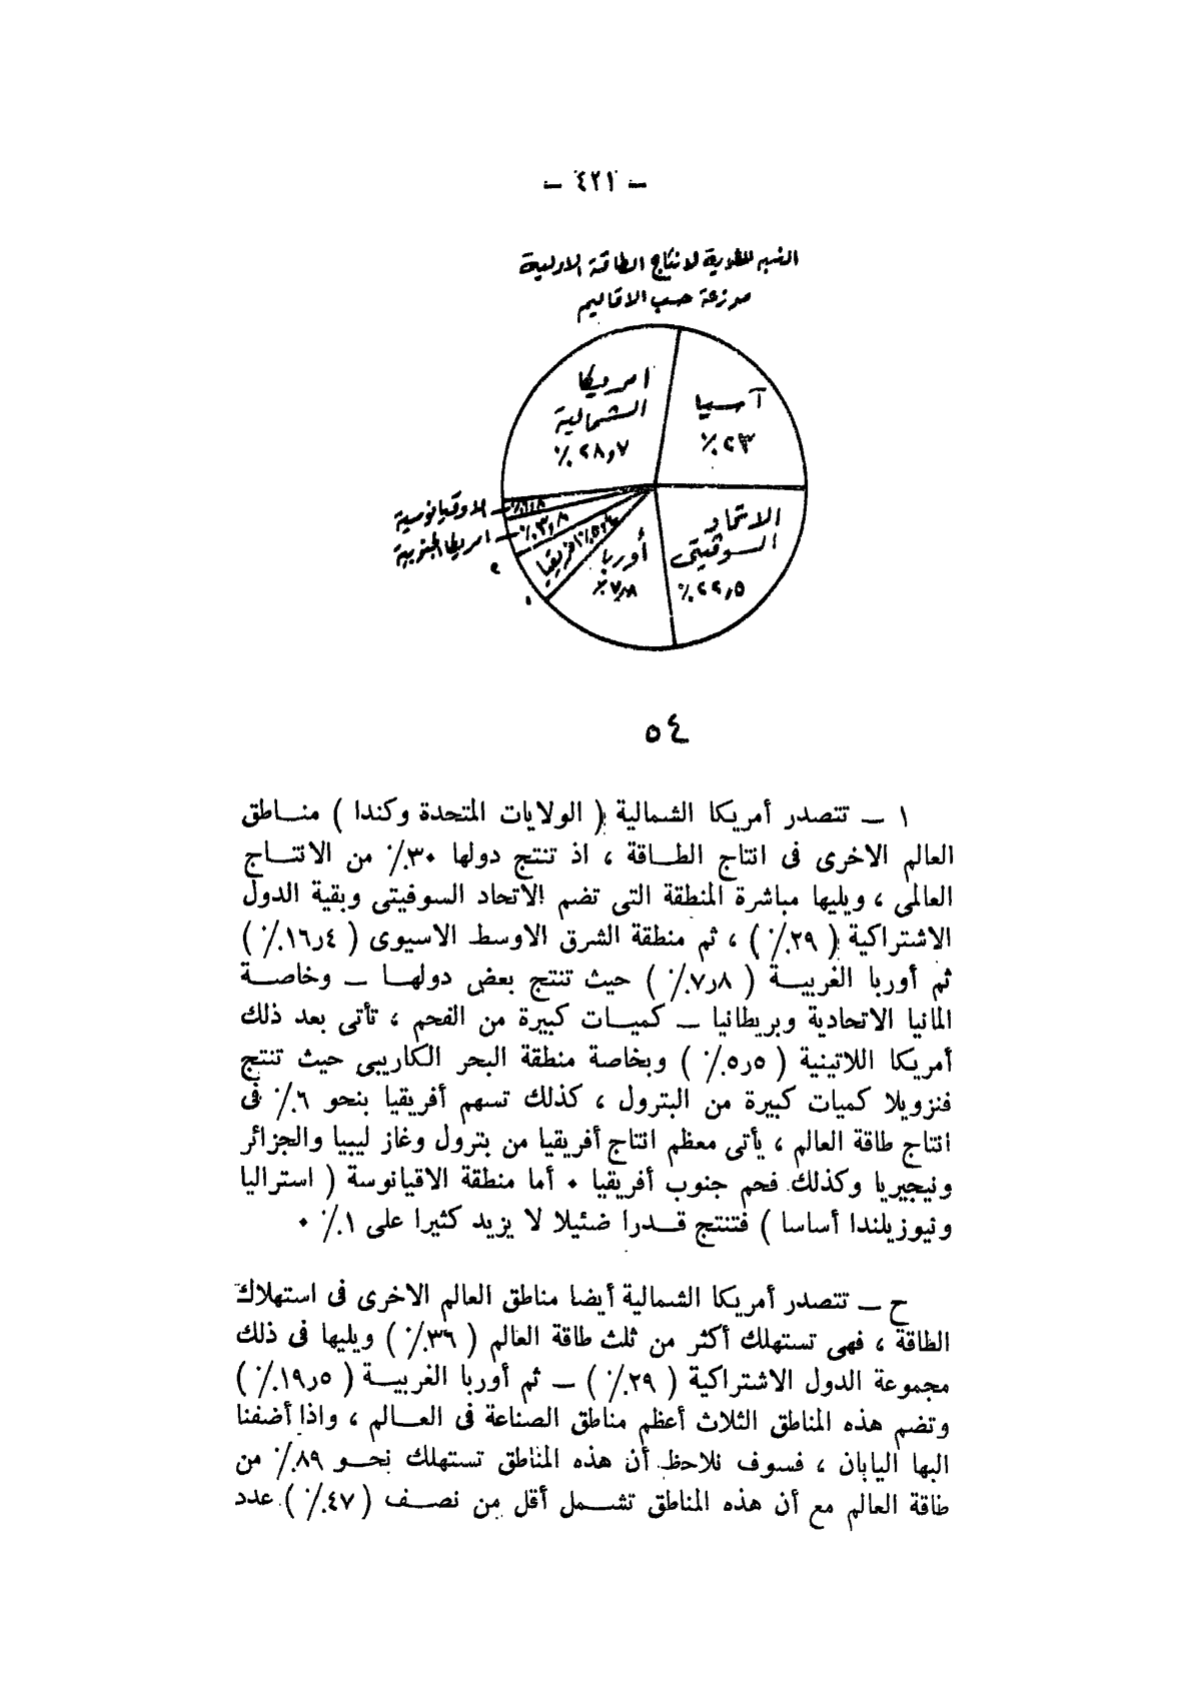 — ٤٢١ —
النسبه المئوية لانتاج الطاقة الاولية
موزعة حسب الاقاليم
امريكا
الشمالية
٢٨٫٧٪
آسيا
٢٣٪
الاتحاد
السوفيتى
٢٢٫٥٪
أوربا
٧٫٨٪
افريقيا
٣٫٨٪
الاوقيانوسية
امريكا الجنوبية
٥٤
١ — تتصدر أمريكا الشمالية ( الولايات المتحدة وكندا ) مناطق
العالم الاخرى فى انتاج الطاقة ، اذ تنتج دولها ٣٠٪ من الانتاج
العالمى ، ويليها مباشرة المنطقة التى تضم الاتحاد السوفيتى وبقية الدول
الاشتراكية ( ٢٩٪ ) ، ثم منطقة الشرق الاوسط الاسيوى ( ١٦٫٤٪ )
ثم أوربا الغربية ( ٧٫٨٪ ) حيث تنتج بعض دولها — وخاصة
المانيا الاتحادية وبريطانيا — كميات كبيرة من الفحم ، تأتى بعد ذلك
أمريكا اللاتينية ( ٥٫٥٪ ) وبخاصة منطقة البحر الكاريبى حيث تنتج
فنزويلا كميات كبيرة من البترول ، كذلك تسهم أفريقيا بنحو ٦٪ فى
انتاج طاقة العالم ، يأتى معظم انتاج أفريقيا من بترول وغاز ليبيا والجزائر
ونيجيريا وكذلك فحم جنوب أفريقيا ٠ أما منطقة الاقيانوسة ( استراليا
ونيوزيلندا أساسا ) فتنتج قدرا ضئيلا لا يزيد كثيرا على ١٪ ٠
ح — تتصدر أمريكا الشمالية أيضا مناطق العالم الاخرى فى استهلاك
الطاقة ، فهى تستهلك أكثر من ثلث طاقة العالم ( ٣٦٪ ) ويليها فى ذلك
مجموعة الدول الاشتراكية ( ٢٩٪ ) — ثم أوربا الغربية ( ١٩٫٥٪ )
وتضم هذه المناطق الثلاث أعظم مناطق الصناعة فى العالم ، واذا أضفنا
اليها اليابان ، فسوف نلاحظ أن هذه المناطق تستهلك نحو ٨٩٪ من
طاقة العالم مع أن هذه المناطق تشمل أقل من نصف ( ٤٧٪ ) عدد